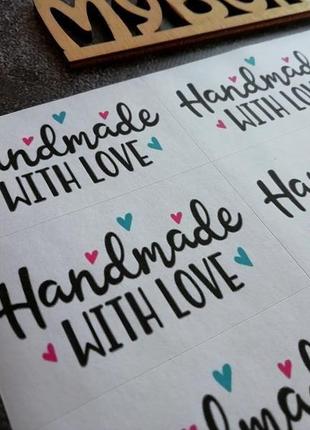 My
Handmade
WITH LOVE
Handmade
WITH LOVE
Handmade
WITH LOVE